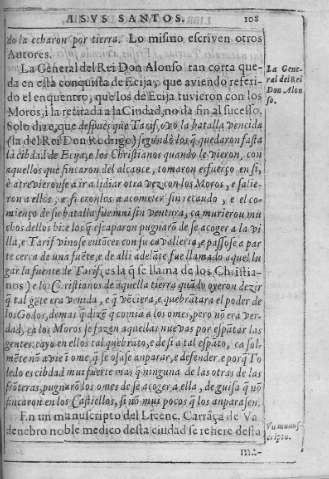 ÆSVS SANTOS. 108
do la echaron por tierra. Lo mismo escriven otros
Autores.
La General del Rei Don Alonso tan corta que-
da en esta conquista de Ecija, que aviendo referi-
do el enquentro, que los de Ecija tuvieron con los
Moros, i la retirada a la Ciudad, no da fin al sucesso.
Solo dize, que despues que Tarif, ovo la batalla vencida
(la del Rei Don Rodrigo) segundo los q̃ quedaron fasta
la cibdad de Ecija, e los Christianos quando le vieron, con
aquellos que fincaron del alcance, tomaron esfuerço en si,
è atrevieronse a ir a lidiar otra vez con los Moros, e salie-
ron a ellos, e fueronlos a cometer sin recaudo, e el co-
mienço de su batalla fue mui sin ventura, ca murieron mu
chos dellos: è los q̃ escaparon pugnarõ de se acoger a la vi
lla, e Tarif vinose entonces con su cavalleria, e passose a par
te cerca de una fuẽte, e de alli adelãte fue llamado aquel lu
gar la fuente de Tarif, es la q̃ se llama de los Christia-
nos) e los Christianos de aquella tierra quãdo oyeron dezir
q̃ tal gẽte era venida, e q̃ vẽciera, e quebrãtara el poder de
los Godos, demas q̃ dizẽ q̃ comia a los omes, pero nõ era ver-
dad, ca los Moros se fazen aquellas nuevas por espãtar las
gentes. cayo en ellos tal quebrãto, e desi a tal espãto, ca sol-
mẽte nõ avie i ome, q̃ se osase anparar, e defender. e porq̃ To
ledo es cibdad mas fuerte mas q̃ ninguna de las otras de las
frõteras, pugnarõ los omes de se acoger a ella, de guisa q̃ nõ
fincaron en los Castiellos, si nõ mui pocos q̃ los anparasen.
En un manuscripto del Licenc. Carrãça de Va
denebro noble medico desta ciudad se refiere desta
ma-
La Gene-
ral del Rei
Don Alon
so.
Vn manus-
cripto.